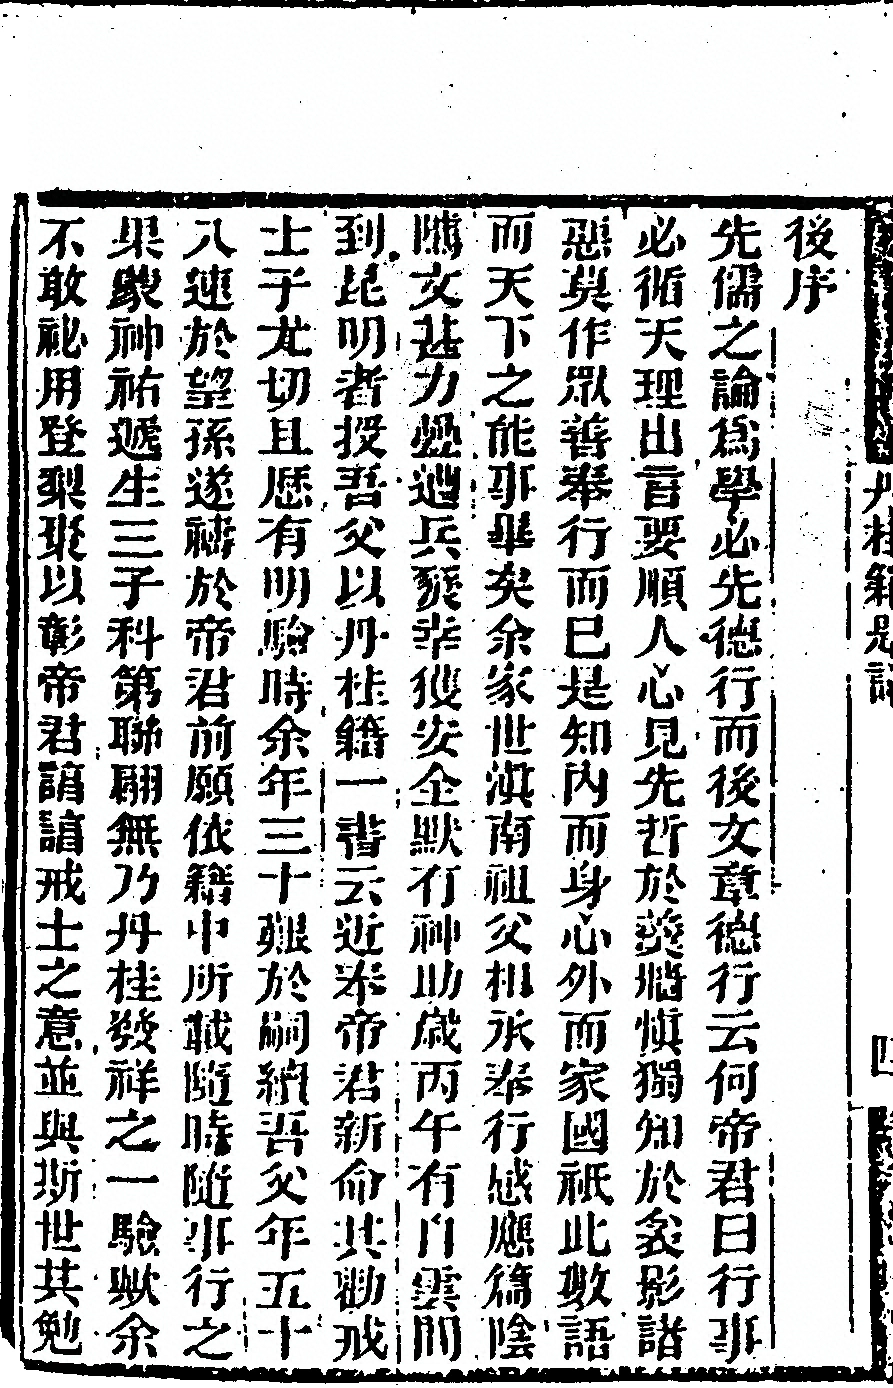 後序
先儒之論爲學必先德行而後文章德行云何帝君曰行事
必循天理出言要順人心見先哲於羹牆慎獨知於衾影諸
惡莫作眾善奉行而已是知內而身心外而家國祇此數語
而天下之能事畢矣余家世滇南祖父相承奉行感應篇陰
隲文甚力疊遭兵燹幸獲安全默有神助歲丙午有自雲間
到昆明者投吾父以丹桂籍一書云近奉帝君新命其勸戒
士子尤切且歷有明驗時余年三十艱於嗣續吾父年五十
八速於望孫遂禱於帝君前願依籍中所載隨時隨事行之
果蒙神祐遞生三子科第聯翩無乃丹桂發祥之一驗歟余
不敢祕用登梨棗以彰帝君諄諄戒士之意並與斯世共勉
丹桂籍
四